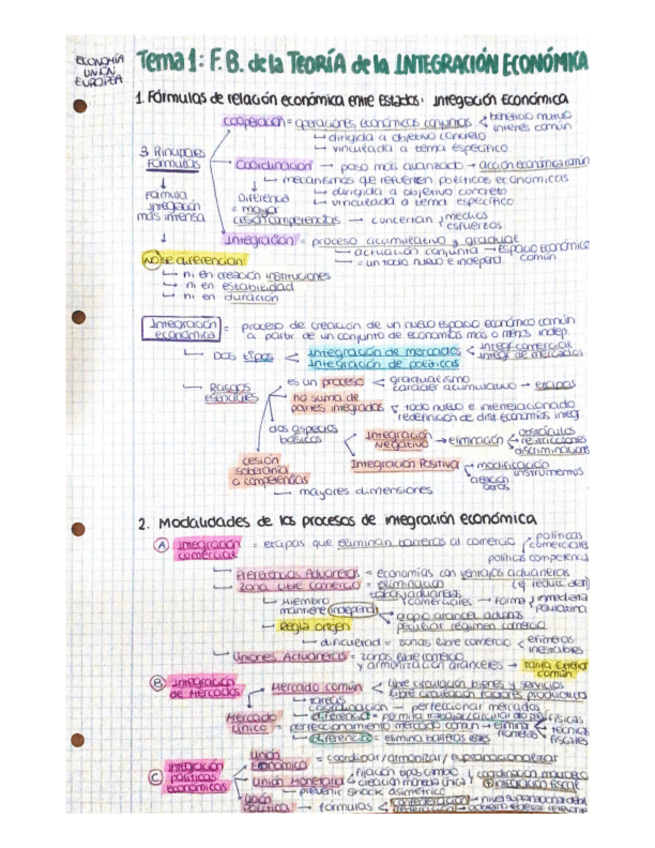 ECONOMÍA
UNIÓN
EUROPEA
Tema 1: F.B. de la TEORÍA de la INTEGRACIÓN ECONÓMICA
1. Fórmulas de relación económica entre Estados: Integración Económica
cooperación = operaciones económicas conjuntas < beneficio mutuo
interés común
dirigida a objetivo concreto
vinculada a tema específico
3 Principales
Fórmulas
Coordinación → paso más avanzado → acción económica común
mecanismos que refuerzan políticas económicas
Fórmula
integración
más intensa
Diferencia
= mayor
cesión competencias → conciertan medios
esfuerzos
dirigida a objetivo concreto
vinculada a tema específico
Integración = proceso acumulativo y gradual
actuación conjunta → espacio económico
común
= un todo nuevo e independ.
NO se diferencian
ni en creación instituciones
ni en estabilidad
ni en duración
Integración
económica = proceso de creación de un nuevo espacio económico común
a partir de un conjunto de economías más o menos indep.
DOS tipos < integración de mercados < integr. comercial
integr. de mercados
integración de políticas
Rasgos
esenciales
es un proceso < gradualismo
carácter acumulativo → etapas
no suma de
partes integradas
todo nuevo e interrelacionado
redefinición de dist. economías integ
dos aspectos
básicos
Integración
Negativa → eliminación obstáculos
restricciones
discriminación
Integración Positiva modificación
instrumentos
creación
otros
cesión
soberanía
o competencias
mayores dimensiones
2. Modalidades de los procesos de integración económica
A Integración
comercial = etapas que eliminan barreras al comercio políticas
comerciales
políticas competencia
Preferencias Aduaneras = economías con ventajas aduaneras
Zona Libre Comercio = eliminación
trabas aduaneras
comerciales → forma inmediata
paulatina
Miembro
mantiene independ. propio arancel aduan
peculiar régimen comercio
Regla origen
dificultad = zonas libre comercio < efímeras
inestables
Uniones Aduaneras = zonas libre comercio
y armonización aranceles → tarifa exterior
común
B Integración
de Mercados
Mercado común < libre circulación bienes y servicios
libre circulación factores productivos
tareas
coordinación → perfeccionar mercados
Mercado
Único
diferencia = permite trabajar/circular
= perfeccionamiento mercado común → elimina
físicas
técnicas
fiscales
diferencia = elimina barreras
C Integración
políticas
económicas
Unión
Económica = coordinar/armonizar/supranacionalizar
Unión Monetaria fijación tipos cambio
creación moneda única
coordinación
integración fiscal
prevenir shock asimétrico
Unión
Política → fórmulas < confederación